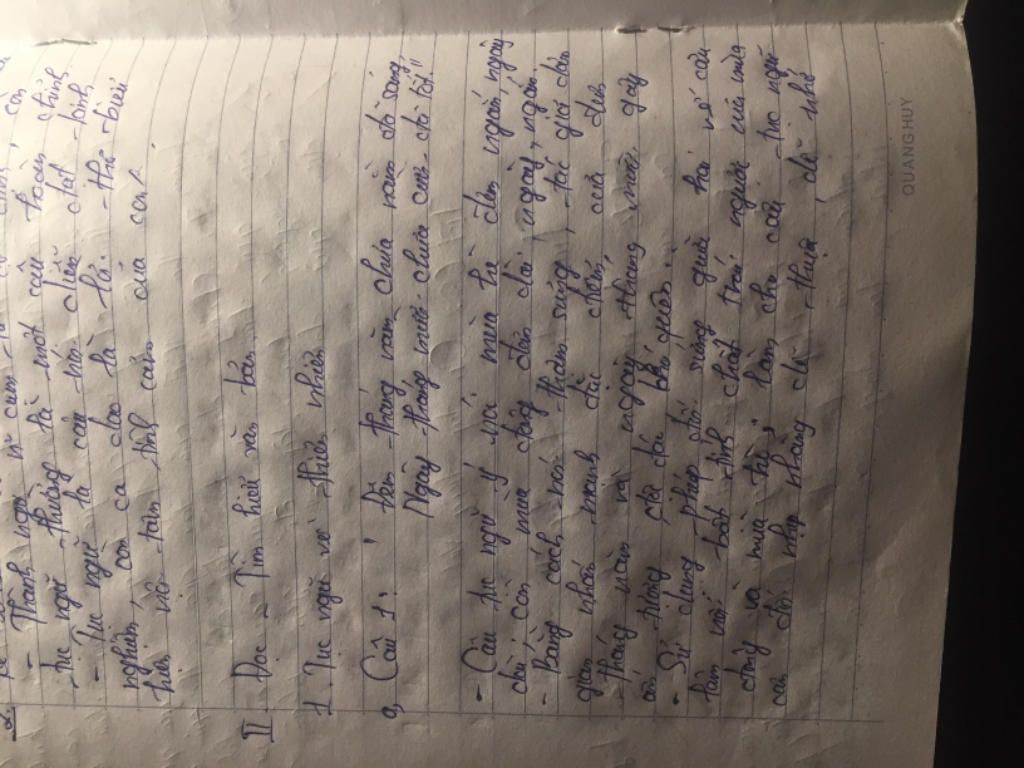 - Thành ngữ
tục ngữ thường là một câu hoàn chỉnh.
- Tục ngữ là câu nói diễn đạt kinh
nghiệm, còn ca dao là lời thơ biểu
hiện nội tâm tình cảm của con
II Đọc - Tìm hiểu văn bản
1. Tục ngữ về thiên nhiên
a, Câu 1: " Đêm tháng năm chưa nằm đã sáng
Ngày tháng mười chưa cười đã tối"
- Câu tục ngữ ý nói mùa hè đêm ngắn, ngày
dài còn mùa đông đêm dài, ngày ngắn.
- Bằng cách nói thậm xưng, tác giả dân
gian nhấn mạnh đặc điểm của đêm
tháng năm và ngày tháng mười gây
ấn tượng độc đáo khó quên.
- Sử dụng phép đối xứng giữa hai vế câu
làm nổi bật tính chất trái ngược của mùa
đông và mùa hè, làm cho câu tục ngữ
cân đối nhịp nhàng dễ thuộc, dễ nhớ
QUANG HUY